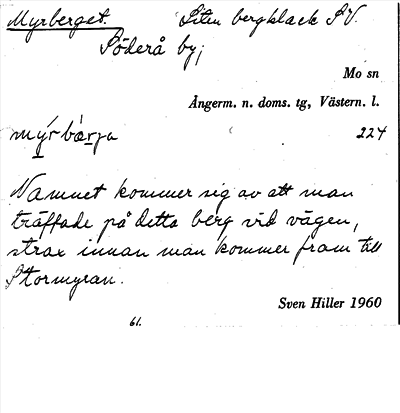 Myrberget. Liten bergklack S.V.
Söderå by;
Mo sn
Ångerm. n. doms. tg, Västern. l.
224
Namnet kommer sig av att man
träffade på detta berg vid vägen,
strax innan man kommer fram till
Stormyran.
Sven Hiller 1960
61.